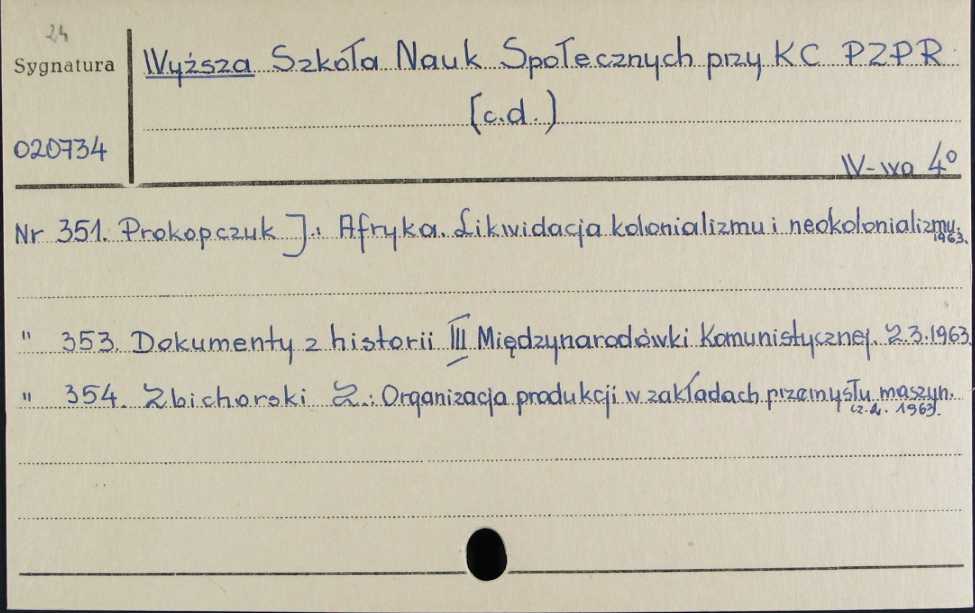 24
Sygnatura
Wyższa Szkoła Nauk Społecznych przy KC PZPR
(c.d.)
020734
W-wa 4°
Nr 351. Prokopczuk J.: Afryka. Likwidacja kolonializmu i neokolonializmu.
1963.
" 353. Dokumenty z historii III Międzynarodówki Komunistycznej. Z.3.1963
" 354. Zbichorski Z.: Organizacja produkcji w zakładach przemysłu maszyn.
cz. 1963.